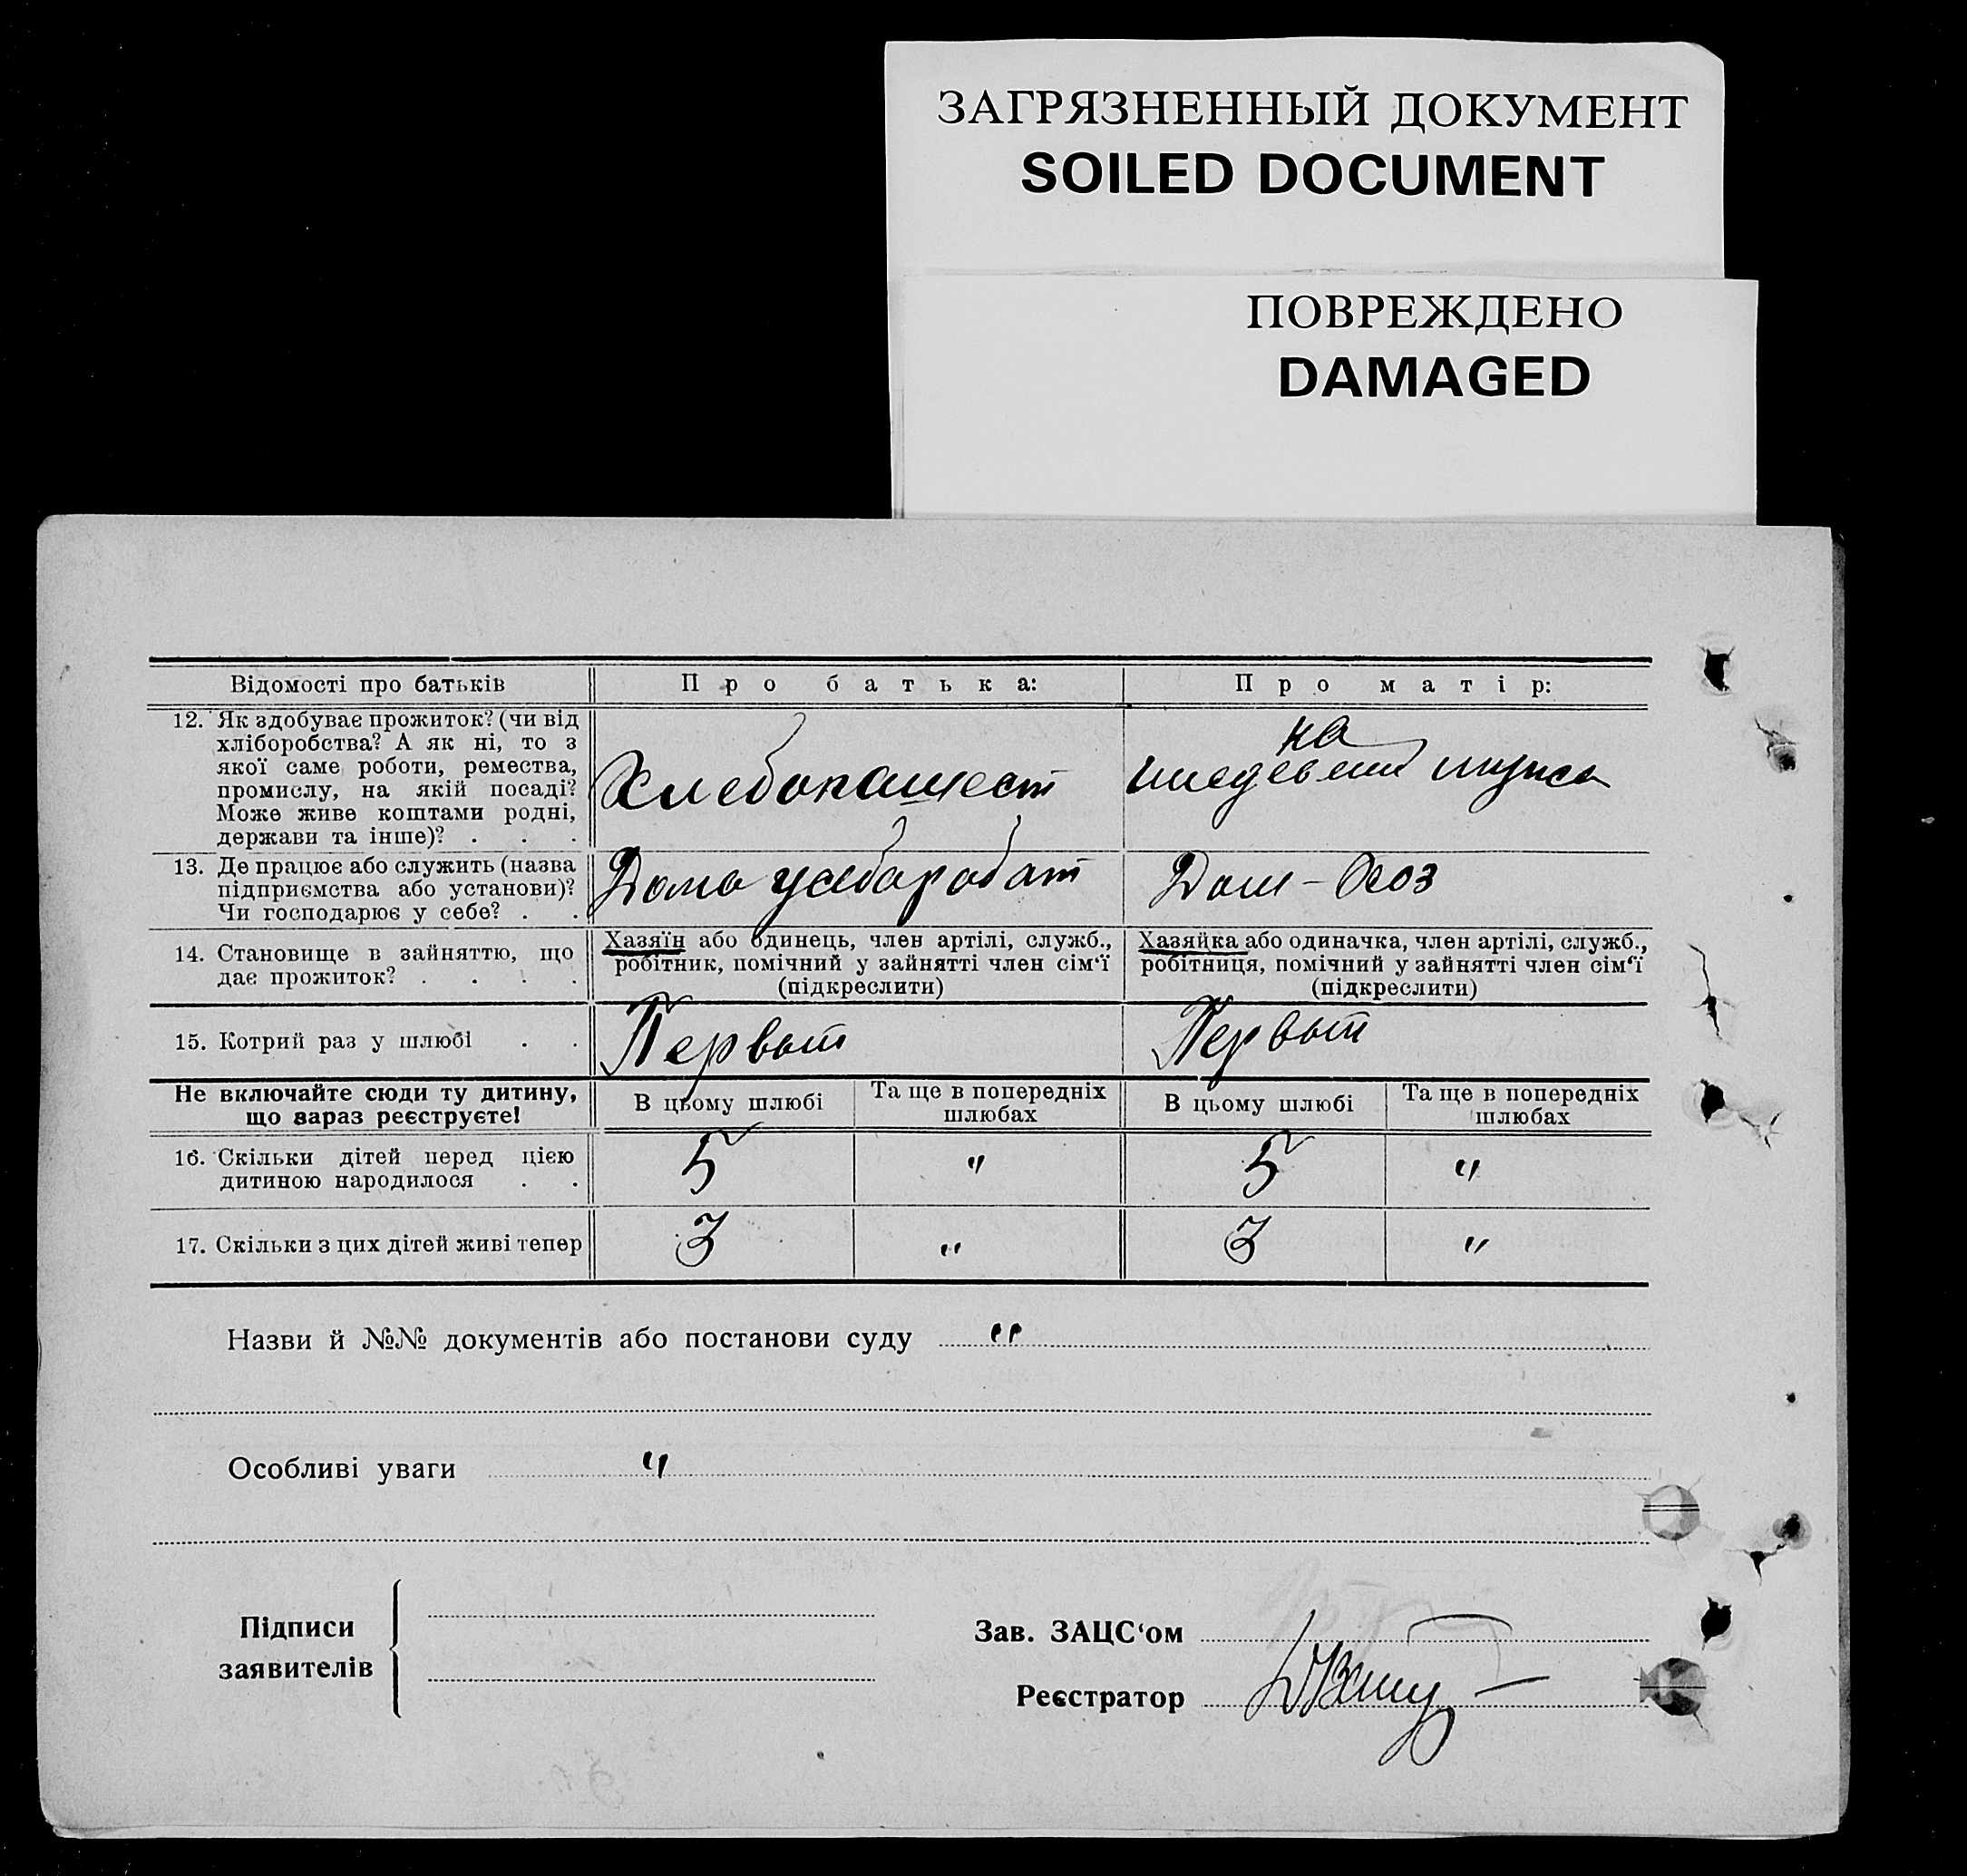 ЗАГРЯЗНЕННЫЙ ДОКУМЕНТ
SOILED DOCUMENT
ПОВРЕЖДЕНО
DAMAGED
Відомості про батьків
Про батька:
Про матір:
12. Як здобуває прожиток? (чи від
хліборобства? А як ні, то з
якої саме роботи, ремества,
промислу, на якій посаді?
Може живе коштами родні,
держави та інше)? . . .
Хлебопашест
на
мужа
13. Де працює або служить (назва
підприємства або установи)?
Чи господарює у себе? . .
Дома
Дом-Хоз
14. Становище в зайняттю, що
дає прожиток? . . . .
Хазяїн або одинець, член артілі, служб.,
робітник, помічний у зайнятті член сім‘ї
(підкреслити)
Хазяйка або одиначка, член артілі, служб.,
робітниця, помічний у зайнятті член сім‘ї
(підкреслити)
15. Котрий раз у шлюбі . .
Первый
Первый
Не включайте сюди ту дитину,
що зараз реєструєте!
В цьому шлюбі
Та ще в попередніх
шлюбах
В цьому шлюбі
Та ще в попередніх
шлюбах
16. Скільки дітей перед цією
дитиною народилося . .
5
"
5
"
17. Скільки з цих дітей живі тепер
3
"
3
"
Назви й №№ документів або постанови суду "
Особливі уваги "
Підписи
заявителів
Зав. ЗАЦС‘ом
Реєстратор